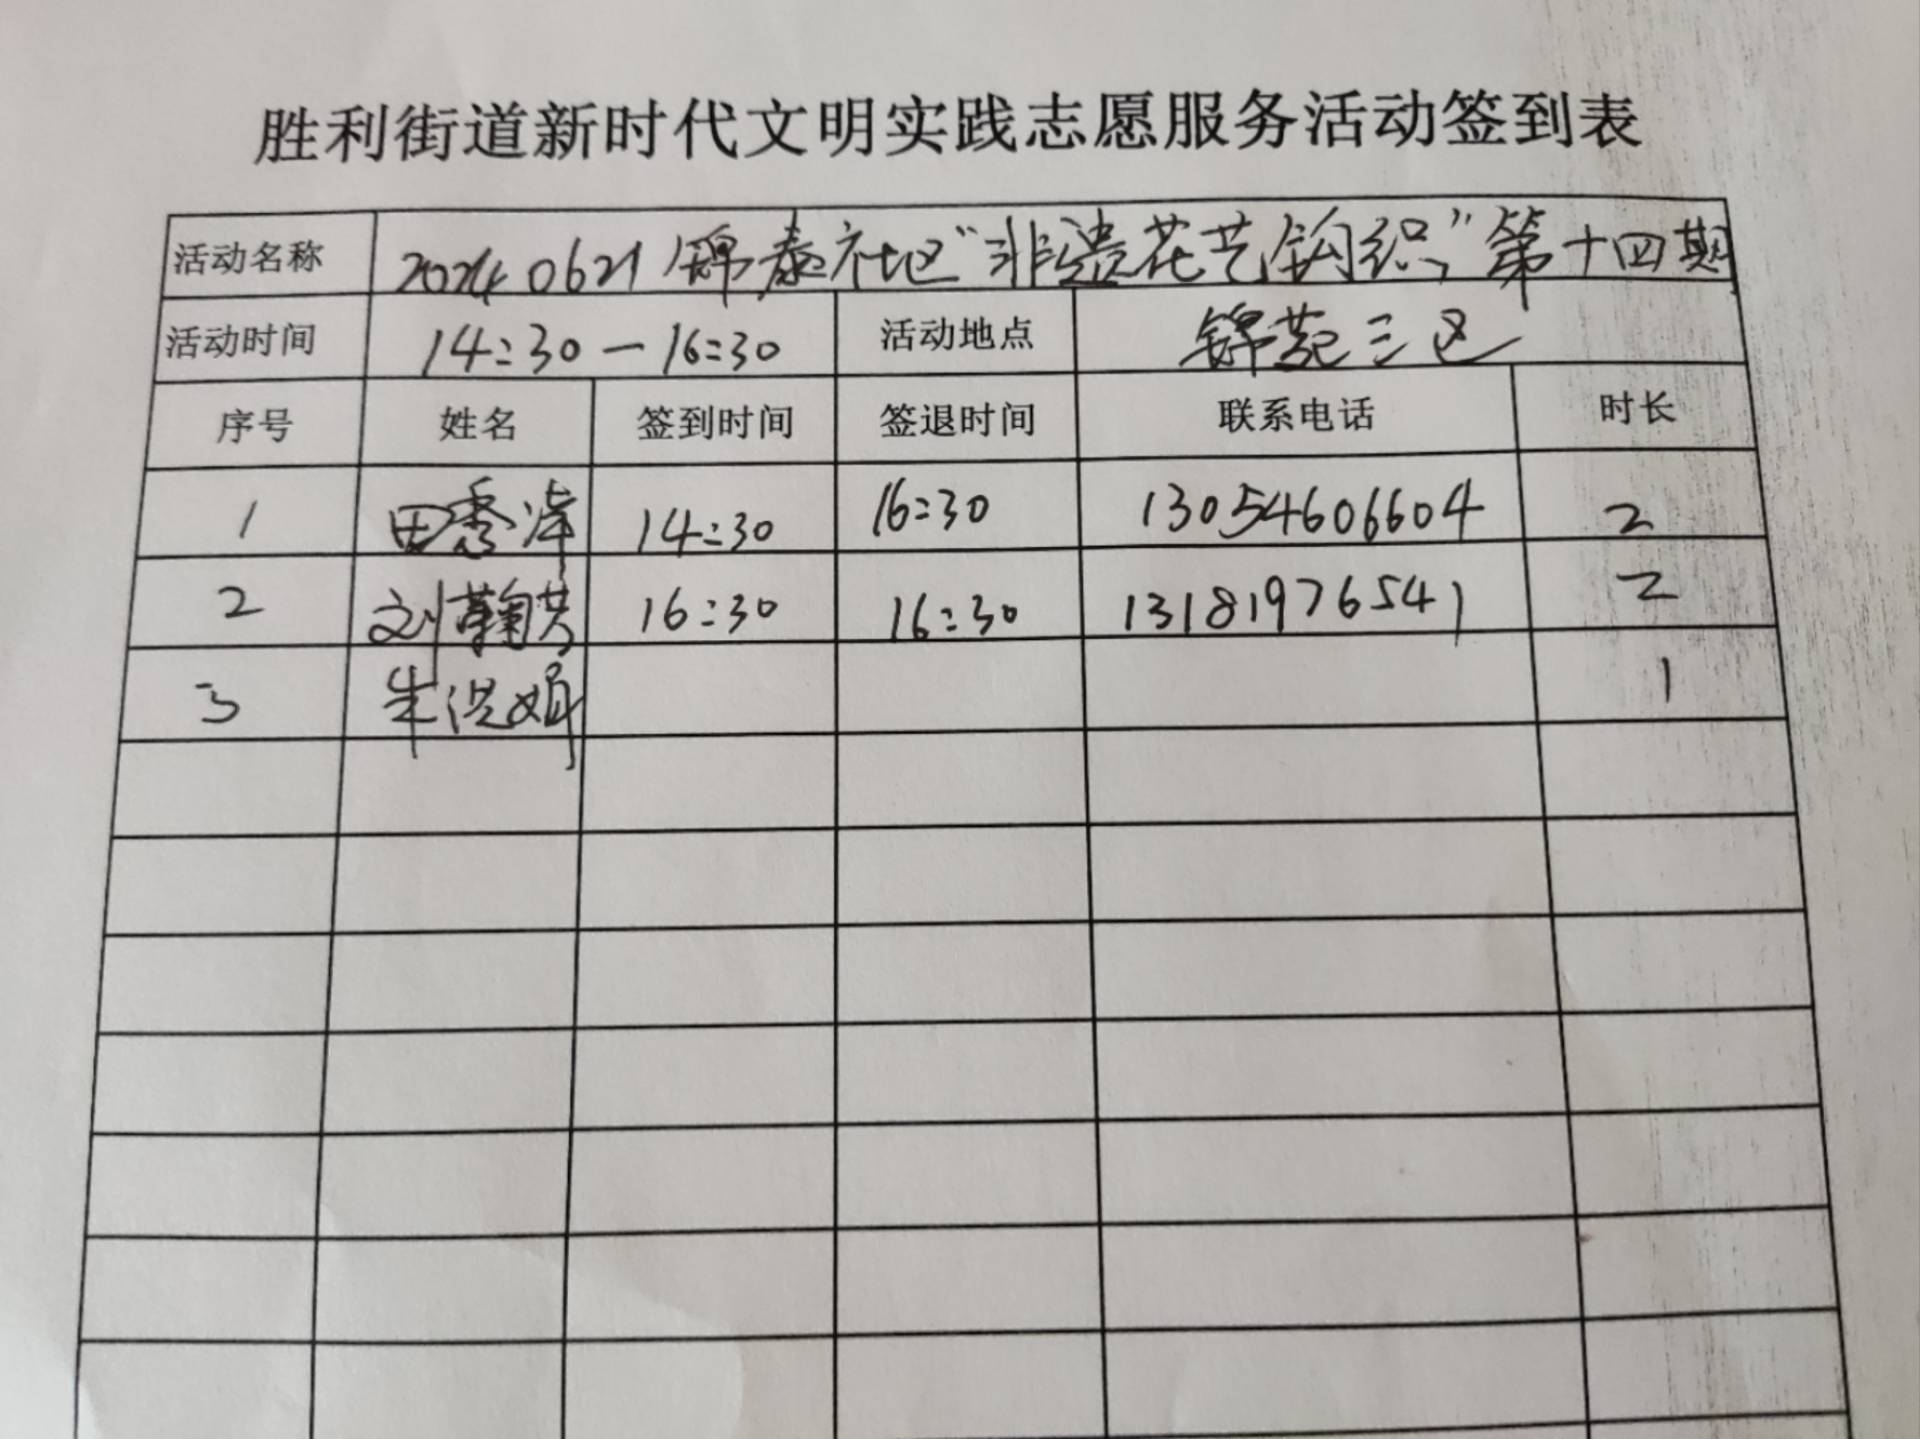 胜利街道新时代文明实践志愿服务活动签到表
活动名称 20240621锦泰社区“非遗花艺钩织”第十四期
活动时间 14:30-16:30 活动地点 锦苑三区
序号 姓名 签到时间 签退时间 联系电话 时长
1 田秀泽 14:30 16:30 13054606604 2
2 刘菊芳 16:30 16:30 13181976541 2
3 朱 娟 1